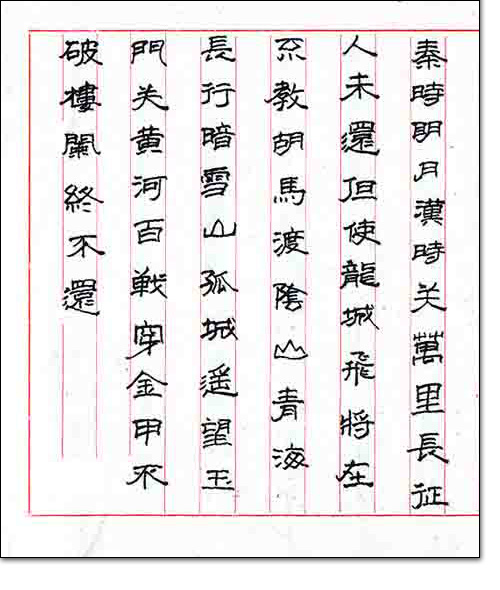 秦時明月漢時关萬里長征
人未還但使龍城飛將在
不教胡馬渡陰山青海
長行暗雪山孤城遥望玉
門关黄河百戦穿金甲不
破樓闌終不還